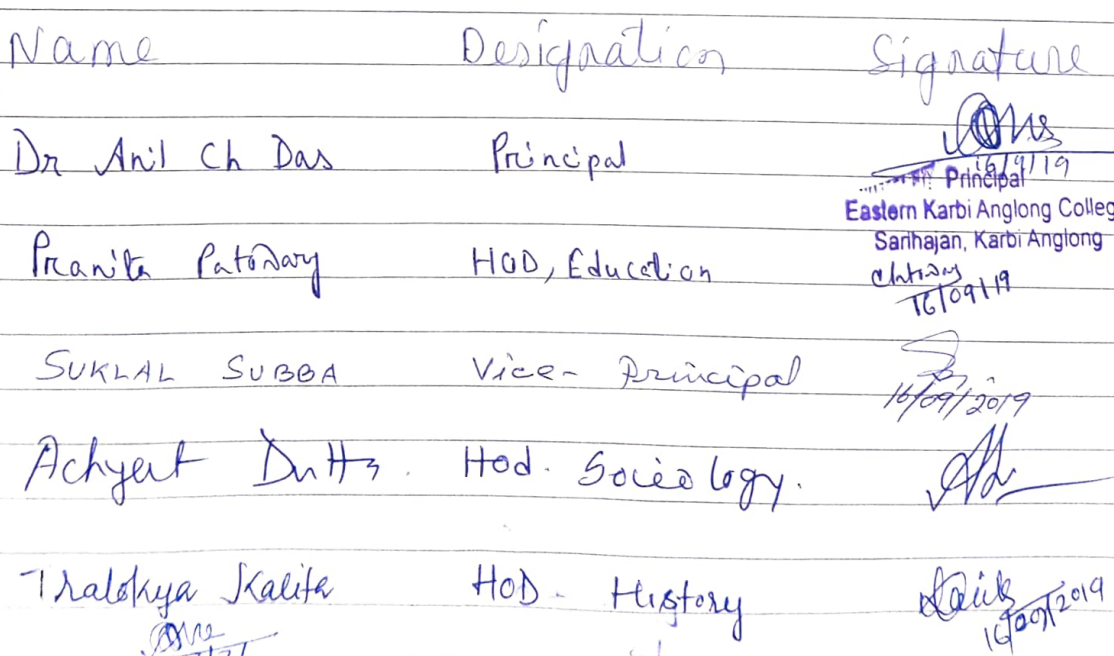 Name Designation Signature
Dr Anil Ch Das Principal
16/9/19
Principal
Eastern Karbi Anglong Colleg
Sarihajan, Karbi Anglong
Pranita Patowary HOD, Education
16/09/19
SUKLAL SUBBA Vice- Principal
16/09/2019
Achyut Dutta. Hod. Sociology.
Thalokya Kalita HOD - History
16/09/2019